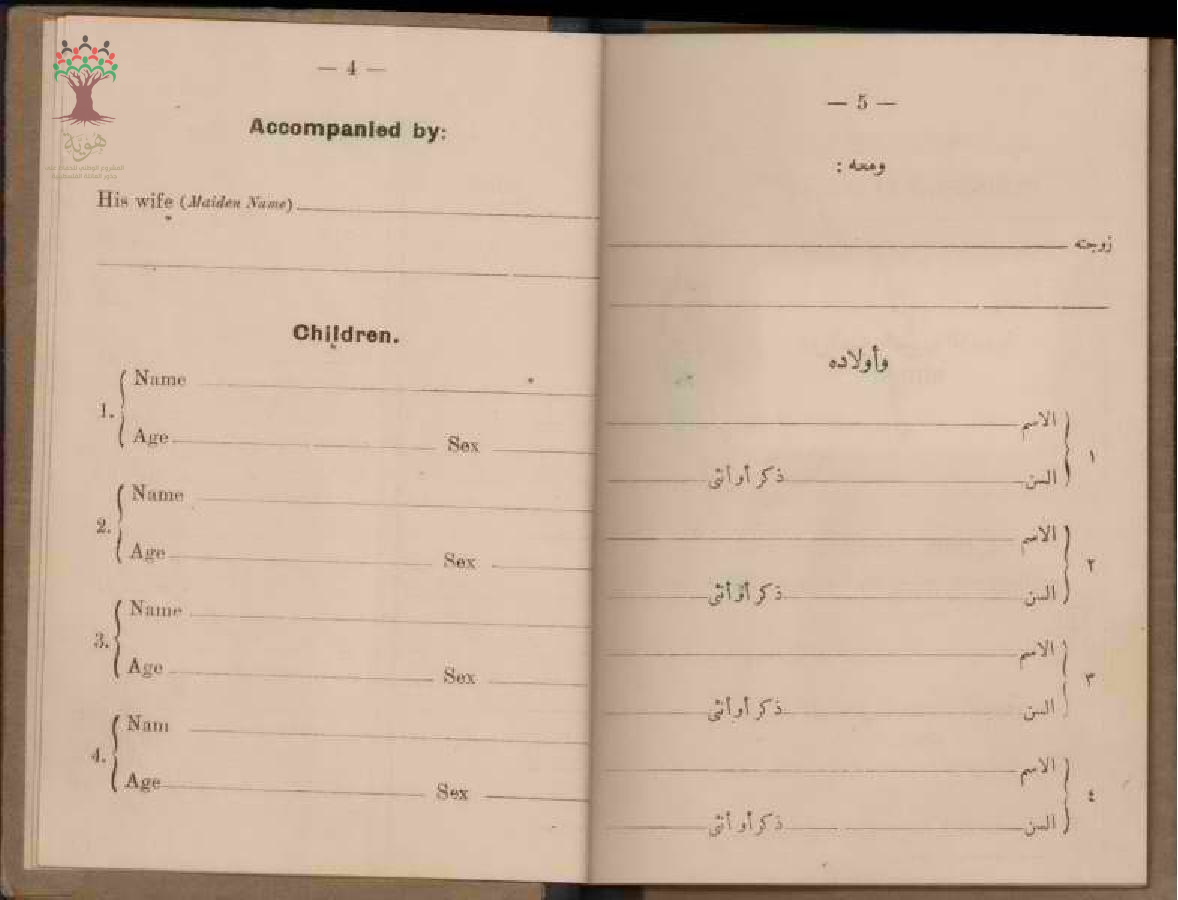 هوية
— 4 —
Accompanied by:
His wife (Maiden Name)
Children.
1.
Name
Age Sex
2.
Name
Age Sex
3.
Name
Age Sex
4.
Nam
Age Sex
— 5 —
ومعه :
زوجته
وأولاده
١
الاسم
السن ذكر أو أنثى
٢
الاسم
السن ذكر أو أنثى
٣
الاسم
السن ذكر أو أنثى
٤
الاسم
السن ذكر أو أنثى